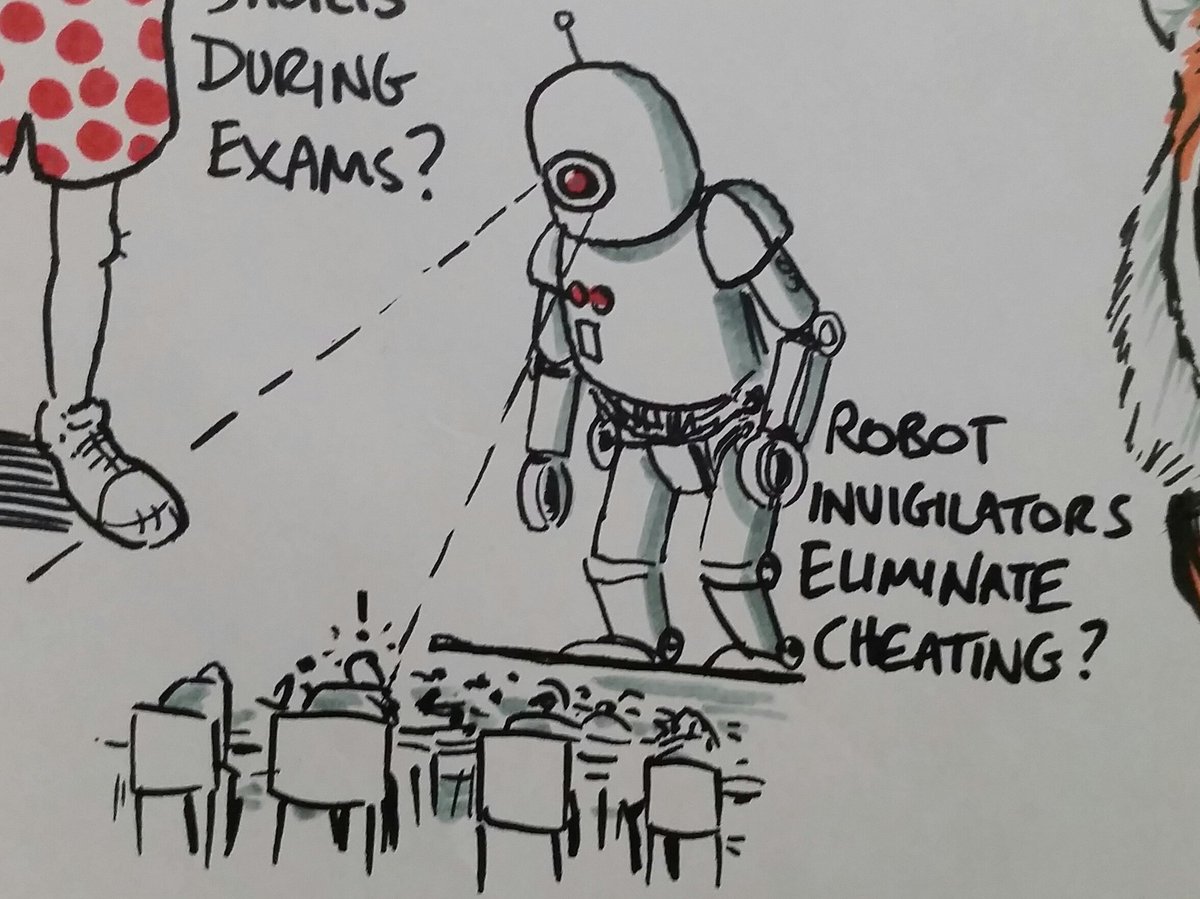 DURING
EXAMS?
ROBOT
INVIGILATORS
ELIMINATE
CHEATING?
!